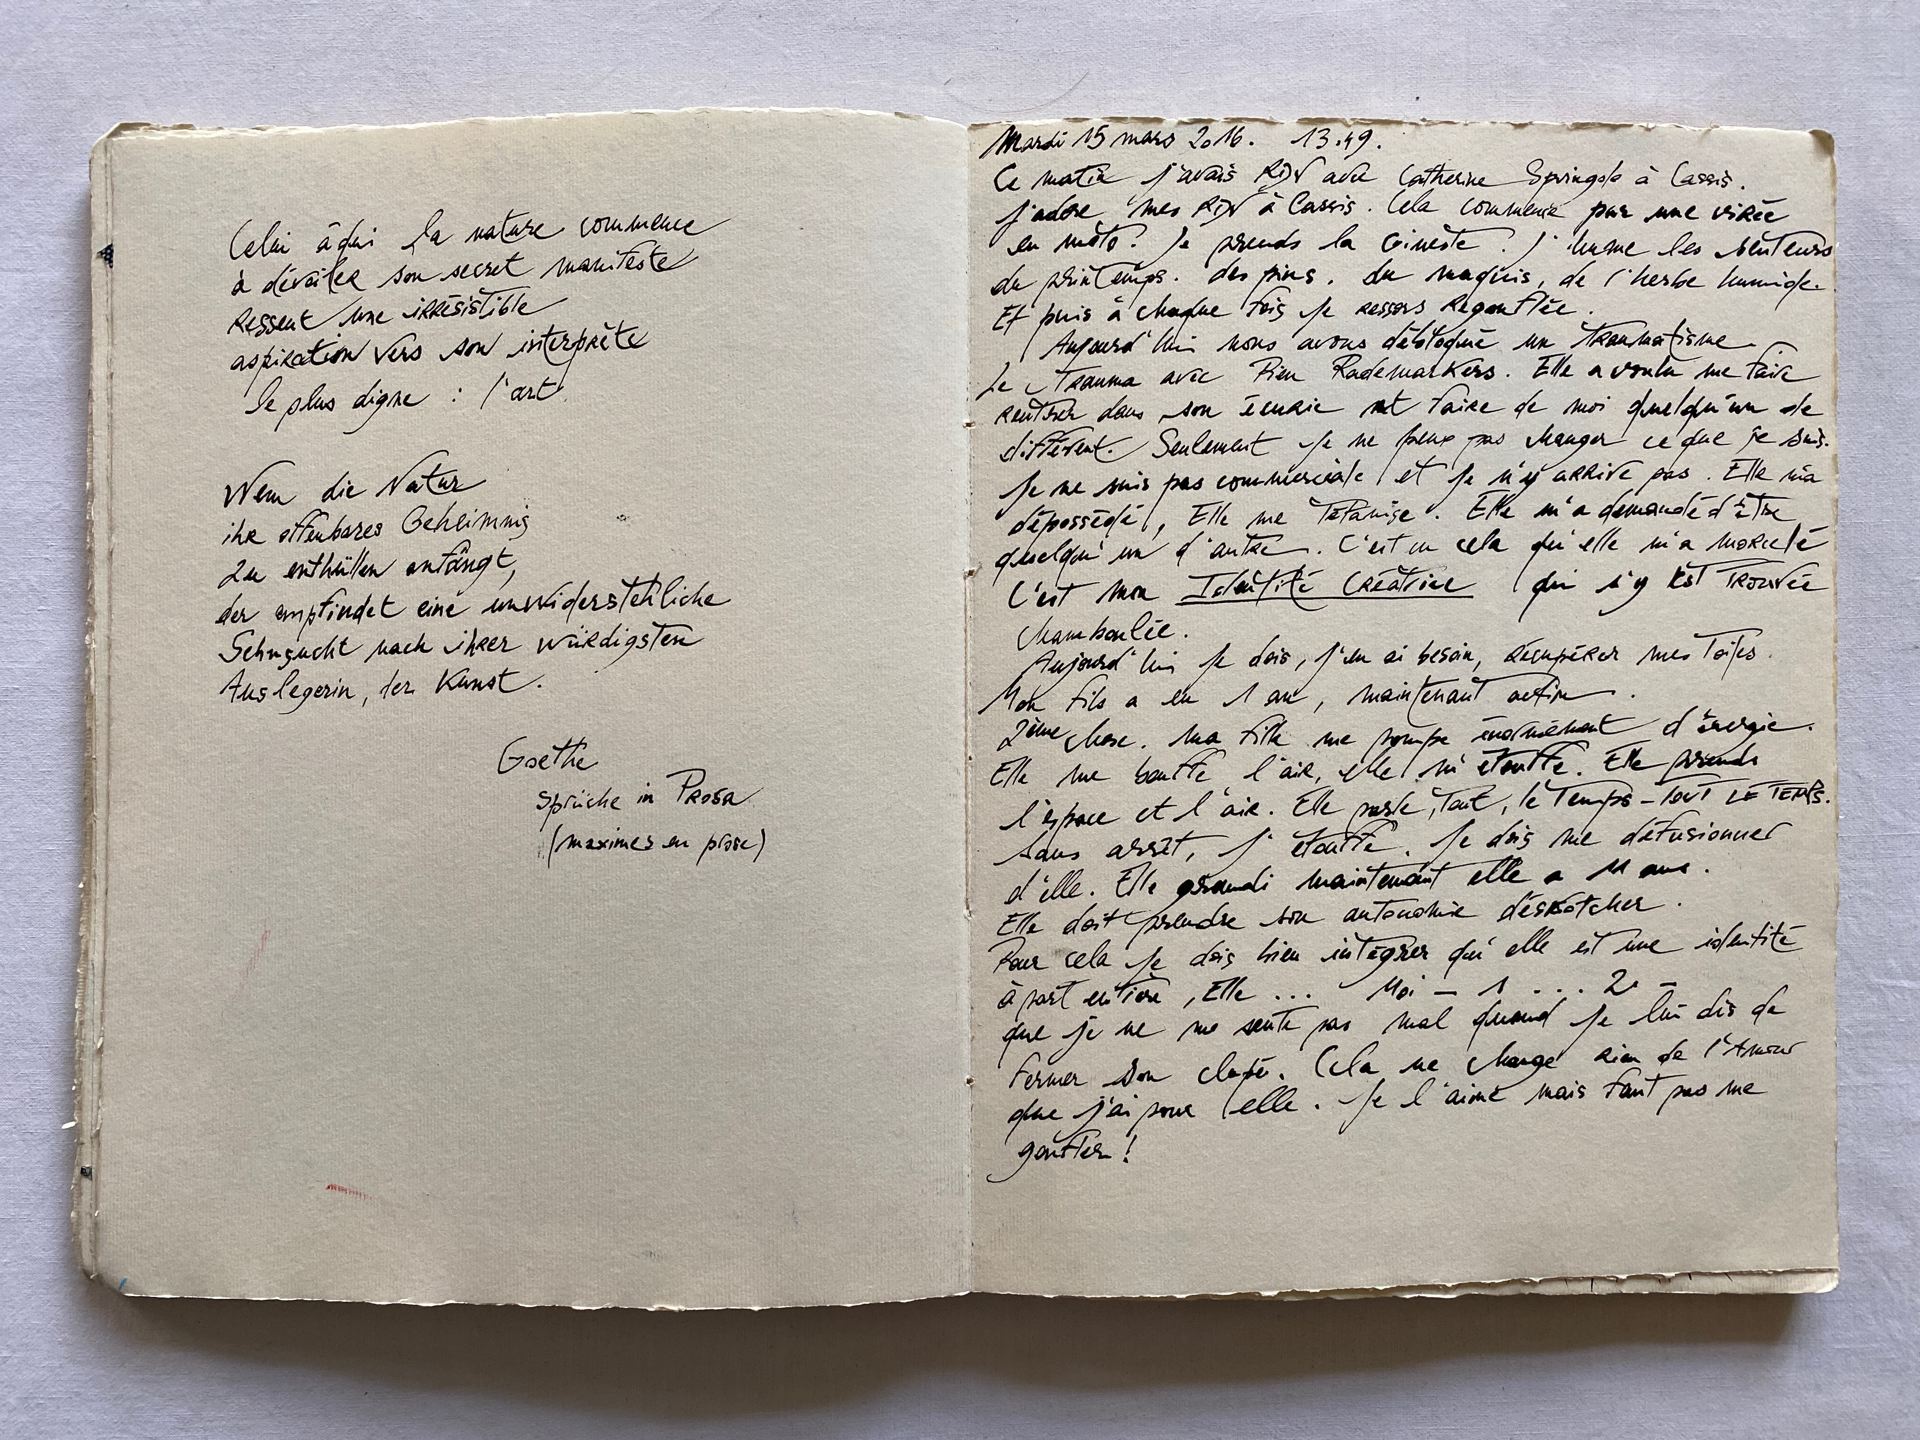 Celui à qui la nature commence
à dévoiler son secret manifeste
ressent une irrésistible
aspiration vers son interprète
le plus digne : l'art
Wem die Natur
ihr offenbares Geheimnis
zu enthüllen anfängt,
der empfindet eine unwiderstehliche
Sehnsucht nach ihrer würdigsten
Auslegerin, der Kunst.
Goethe
Sprüche in Prosa
(maximes en prose)
Mardi 15 mars 2016. 13.49.
Ce matin j'avais RDV avec Catherine à Cassis.
J'adore mes RDV à Cassis. Cela commence par une virée
en moto. Je prends la Gineste. J'hume les senteurs
du printemps. des pins. du maquis, de l'herbe humide.
Et puis à chaque fois je ressors regonflée.
Aujourd'hui nous avons débloqué un traumatisme.
Le Trauma avec Rien Rademarkers. Elle a voulu me faire
rentrer dans son écurie et faire de moi quelqu'un de
différent. Seulement je ne peux pas changer ce que je suis.
Je ne suis pas commerciale et je n'y arrive pas. Elle m'a
dépossédé, Elle me Tétanise. Elle m'a demandé d'être
quelqu'un d'autre. C'est en cela qu'elle m'a morcelé
C'est mon Identité Créatrice qui s'y est trouvée
chamboulée.
Aujourd'hui je dois, j'en ai besoin, récupérer mes Toiles.
Mon fils a eu 1 an, maintenant
2ème chose. ma fille me pompe énormément d'énergie.
Elle me bouffe l'air, elle m'étouffe. Elle prends
l'espace et l'air. Elle parle, Tout, le Temps – TOUT LE TEMPS.
Sans arrêt, j'étouffe. Je dois me défusionner
d'elle. Elle grandi maintenant elle a 11 ans.
Elle doit prendre son autonomie déskotcher.
Pour cela je dois bien intégrer qu'elle est une identité
à part entière, Elle ... Moi – 1 ... 2 –
que je ne me sente pas mal quand je lui dis de
fermer son clapé. Cela ne change rien de l'Amour
que j'ai pour elle. Je l'aime mais faut pas me
gonfler!